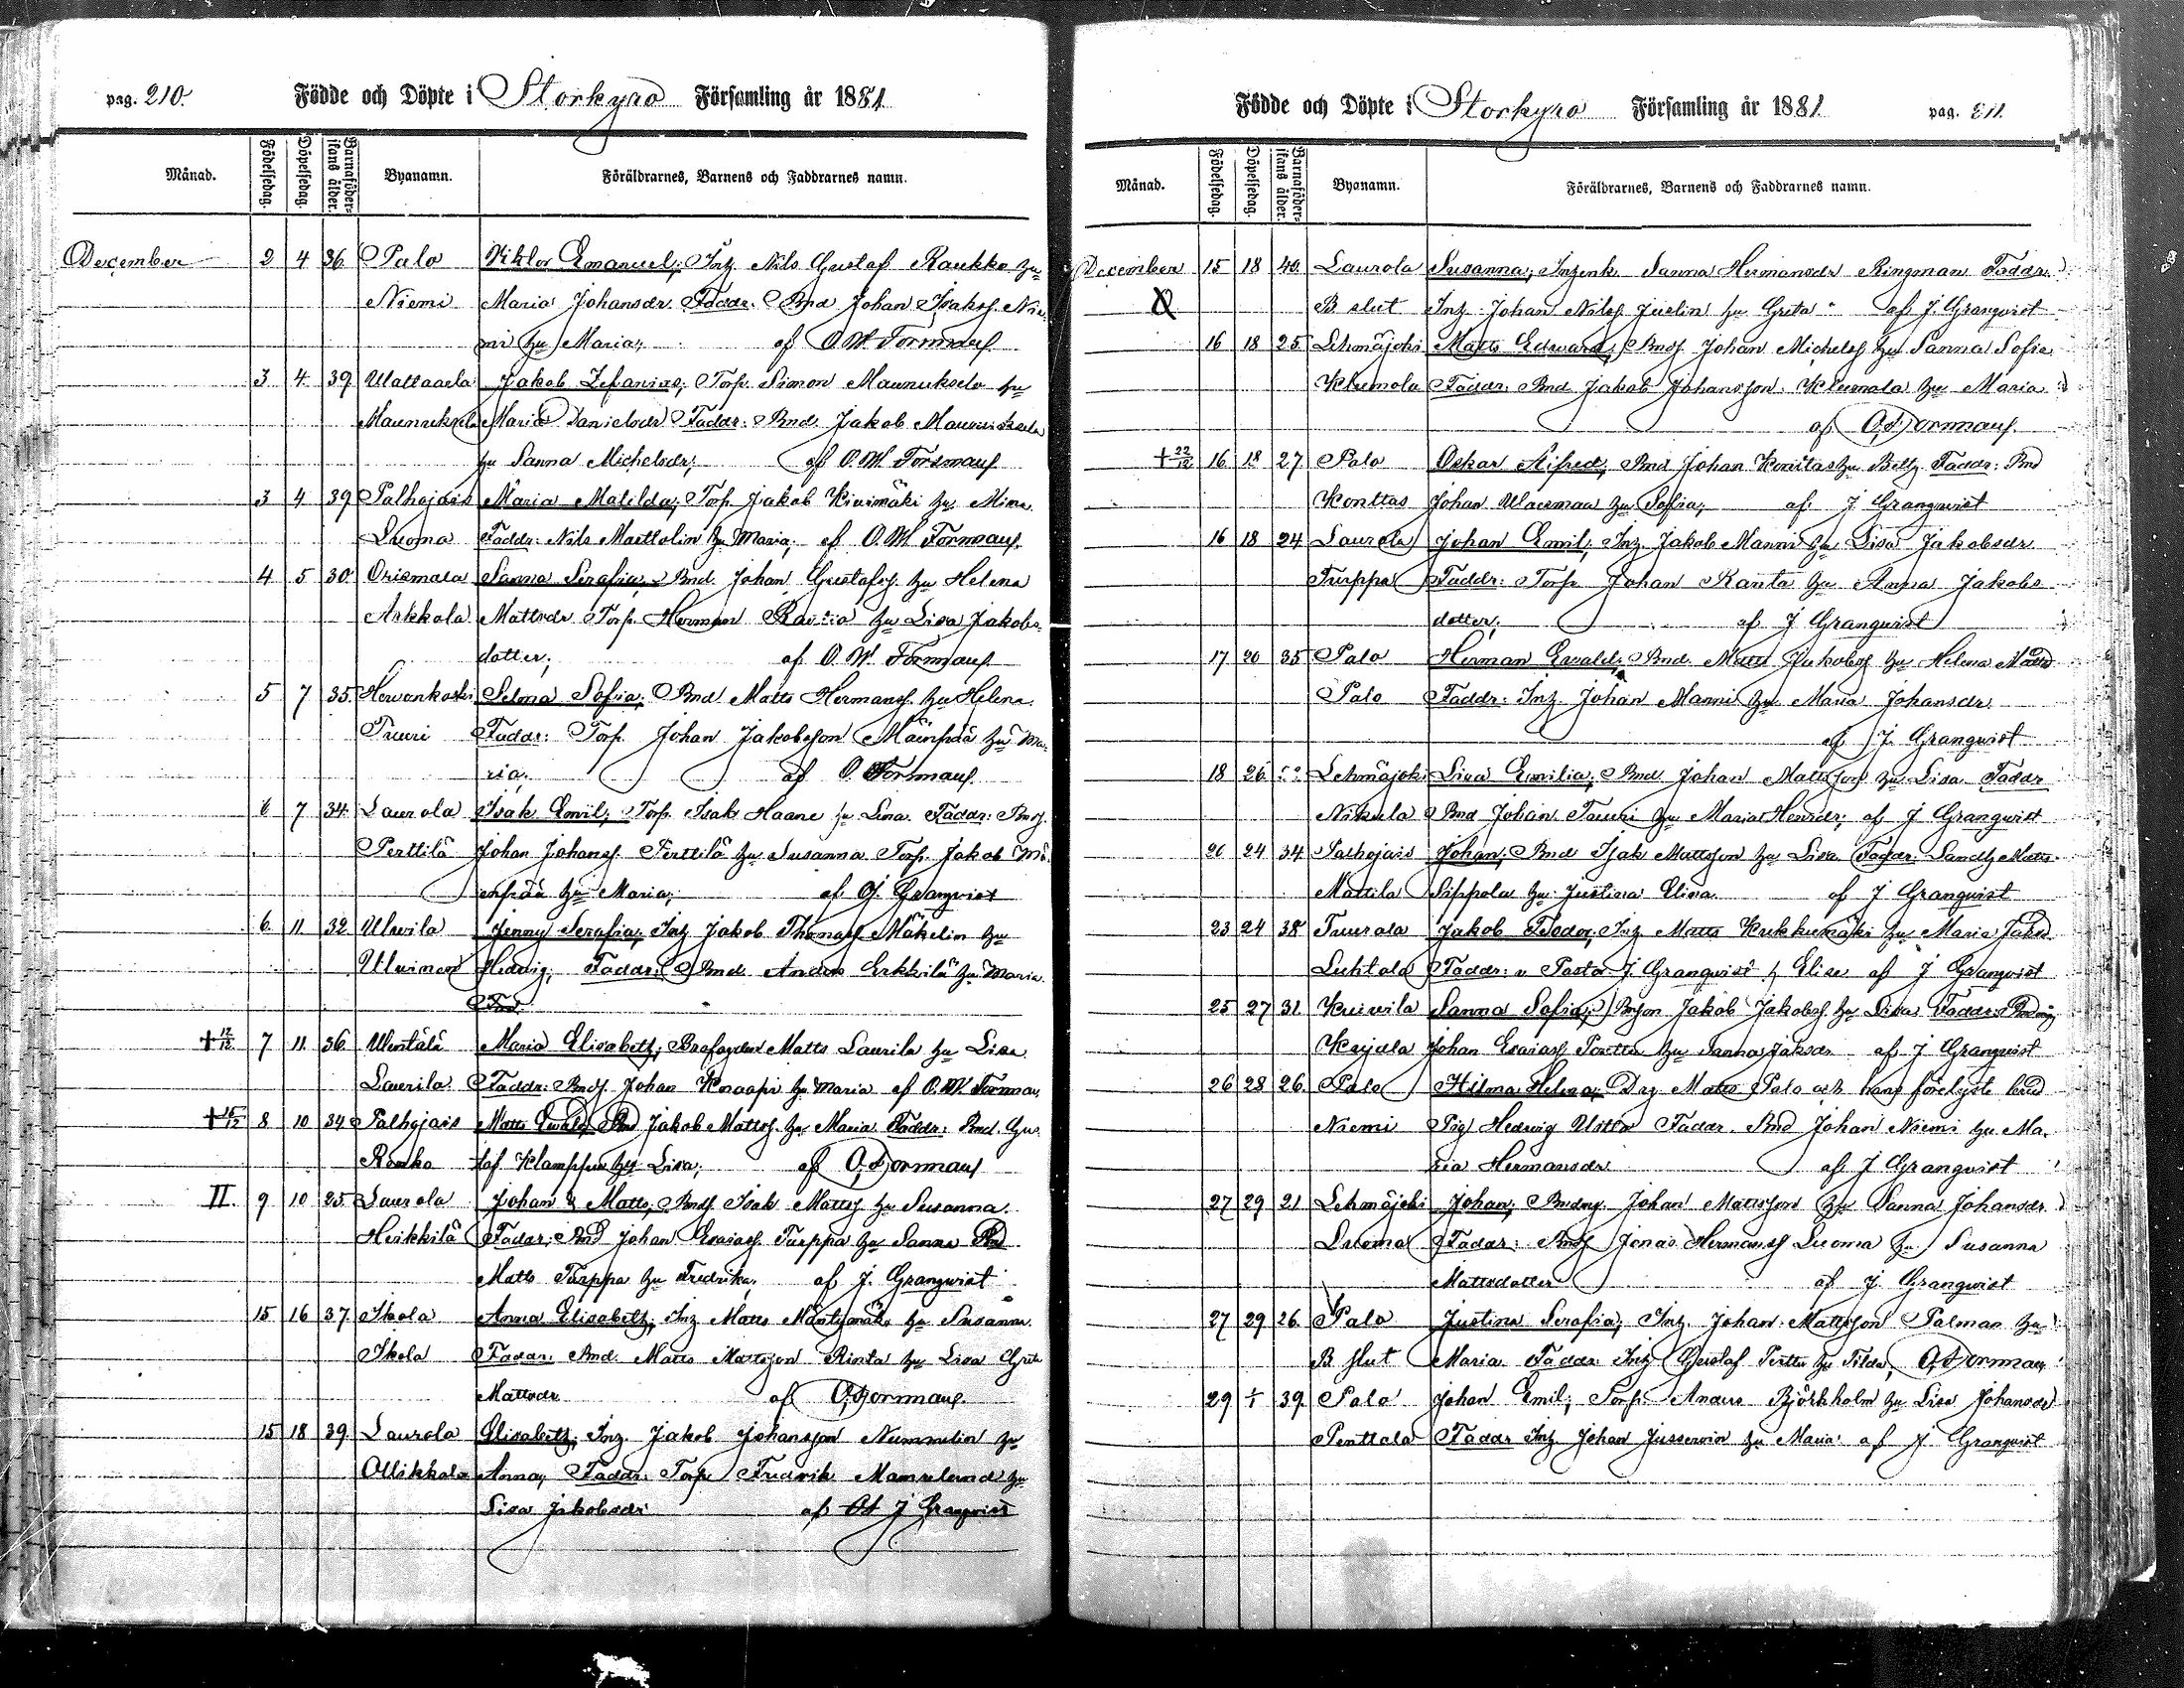 pag. 210.
Födde och Döpte i Storkyro Församling år 1881
Månad. Födelsedag. Döpelsedag. Barnaföderskans ålder. Byanamn. Föräldrarnes, Barnens och Faddrarnes namn.
December 2 4 36 Palo Viktor Emanuel; Inh. Nils Gustaf Raukko hu
Niemi Maria Johansdr. Faddr: Bnd Johan Isakss. Nie
mi hu Maria; af O. W. Forsman
3 4 39 Jakob Zefanias; Torp. Simon Maunuksela hu
Maunuksela Maria Danielsdr Faddr: Bnd. Jakob Maunuksela
hu Sanna Michelsdr; af O. W. Forsman
3 4 39 Palhojais Maria Matilda; Torp. Jakob Kivimäki hu Mina
Luoma Faddr: Nils Marttolin hu Maria; af O. W. Forsman
4 5 30 Orismala Sanna Serafia; Bnd. Johan Gustafss. hu Helena
Arkkola Mattsdr Torp. Herman hu Lisa Jakobs
dotter; af O. W. Forsman
5 7 35 Hevonkoski Selma Sofia; Bnd Matts Hermanss. hu Helena
Tuuri Faddr: Torp. Johan Jakobsson Mäinpää hu Ma
ria. af O. Forsman
6 7 34 Laurola Isak Emil; Torp. Isak Haane hu Lisa Faddr: Bndss.
Perttilä Johan Johanss. Perttilä hu Susanna Torp. Jakob Mä
enpää hu Maria; af J. Granqvist
6 11 32 Ulvila Jenny Serafia; Inh Jakob Thomass Mäkelin hu
Ulvinen Hedvig; Faddr: Bnd. Anders Erkkilä hu Maria
+ 12/12 7 11 36 Wentälä Maria Elisabeth; Matts Laurila hu Lisa
Laurila Faddr: Bnds. Johan Knaapi hu Maria af O. W. Forsman
+ 16/12 8 10 34 Palhojais Matts Ewald; Bnd Jakob Mattss. hu Maria Faddr: Bnd. Gus
Ranka taf Klamppu hu Lisa; af O. Forsman
II. 9 10 25 Laurola Johan & Matts; Bnds Isak Mattss hu Susanna
Heikkilä Faddr; Bnd Johan Esaiass. Turppa hu Sanna Bnd
Matts Turppa hu Fredrika; af J. Granqvist
15 16 37 Ikola Anna Elisabeth; Inh Matts Mäntymäki hu Susanna
Ikola Faddr. Bnd. Matts Mattsson Rinta hu Lisa Greta
Mattsdr af O. Forsman
15 18 39 Laurola Elisabeth; Inh. Jakob Johansson Nummelin hu
Ollikkala Anna; Faddr. Torp. Fredrik hu
Lisa Jakobsdr af J Granqvist
Födde och Döpte i Storkyro Församling år 1881
pag. 211.
Månad. Födelsedag. Döpelsedag. Barnaföderskans ålder. Byanamn. Föräldrarnes, Barnens och Faddrarnes namn.
December 15 18 40 Laurola Susanna; Inhenk. Sanna Hermansdr Ringonan Faddr.
B slut Inh. Johan Nilss. Juslin hu Greta af J. Granqvist
16 18 25 Lehmäjoki Matts Edward; Bnds. Johan Michelss hu Sanna Sofia
Klemola Faddr. Bnd Jakob Johansson Klemola hu Maria
af O. Forsman
+ 22/12 16 18 27 Palo Oskar Alfred; Bnd Johan Konttas hu Beth. Faddr: Bnd
Konttas Johan hu Sofia; af J Granqvist
16 18 24 Laurola Johan Emil; Inh. Jakob Manni hu Lisa Jakobsdr
Turppa Faddr: Torp Johan Ranta hu Anna Jakobs
dotter; af J Granqvist
17 20 35 Palo Herman Ewald; Bnd. Matts Jakobss hu Helena Mattsd
Palo Faddr: Inh. Johan Manni hu Maria Johansdr
af J. Granqvist
18 26 Lehmäjoki Lisa Emilia; Bnd Johan Mattsson hu Lisa Faddr
Nikula Bnd Johan Tauri hu Maria Henrdr; af J Granqvist
20 24 34 Palhojais Johan; Bnd Isak Mattsson hu Lisa Faddr: Landb. Matts
Mattila Sippola hu Justina Elisa af J Granqvist
23 24 38 Tuurala Jakob Fredor; Inh Matts Kukkumäki hu Maria Jakd
Luhtala Faddr: v Pastor J. Granqvist & Elise af J Granqvist
25 27 31 Kuivila Sanna Sofia; Jakob Jakobss. hu Lisa Faddr:
Keijala Johan Esaiass Perttu hu Sanna Jaksdr af J Granqvist
26 28 26 Palo Hilma Helena; Drg Matts Palo och hans förelyste brud
Niemi Pig Hedvig Faddr. Bnd Johan Niemi hu Ma
ria Hermansdr af J Granqvist
27 29 21 Lehmäjoki Johan; Johan Mattsson hu Sanna Johansdr
Luoma Faddr: Bnds Jonas Hermanss Luoma hu Susanna
Mattsdotter af J Granqvist
27 29 26 Palo Justina Serafia; Inh. Johan Mattsson Palman hu
B slut Maria Faddr Inh Gustaf Perttu hu Tilda; O. Forsman
29 1/1 39 Palo Johan Emil; Torp. Anders Björkholm hu Lisa Johansdr
Penttala Faddr Inh Johan Jussevin hu Maria af J. Granqvist